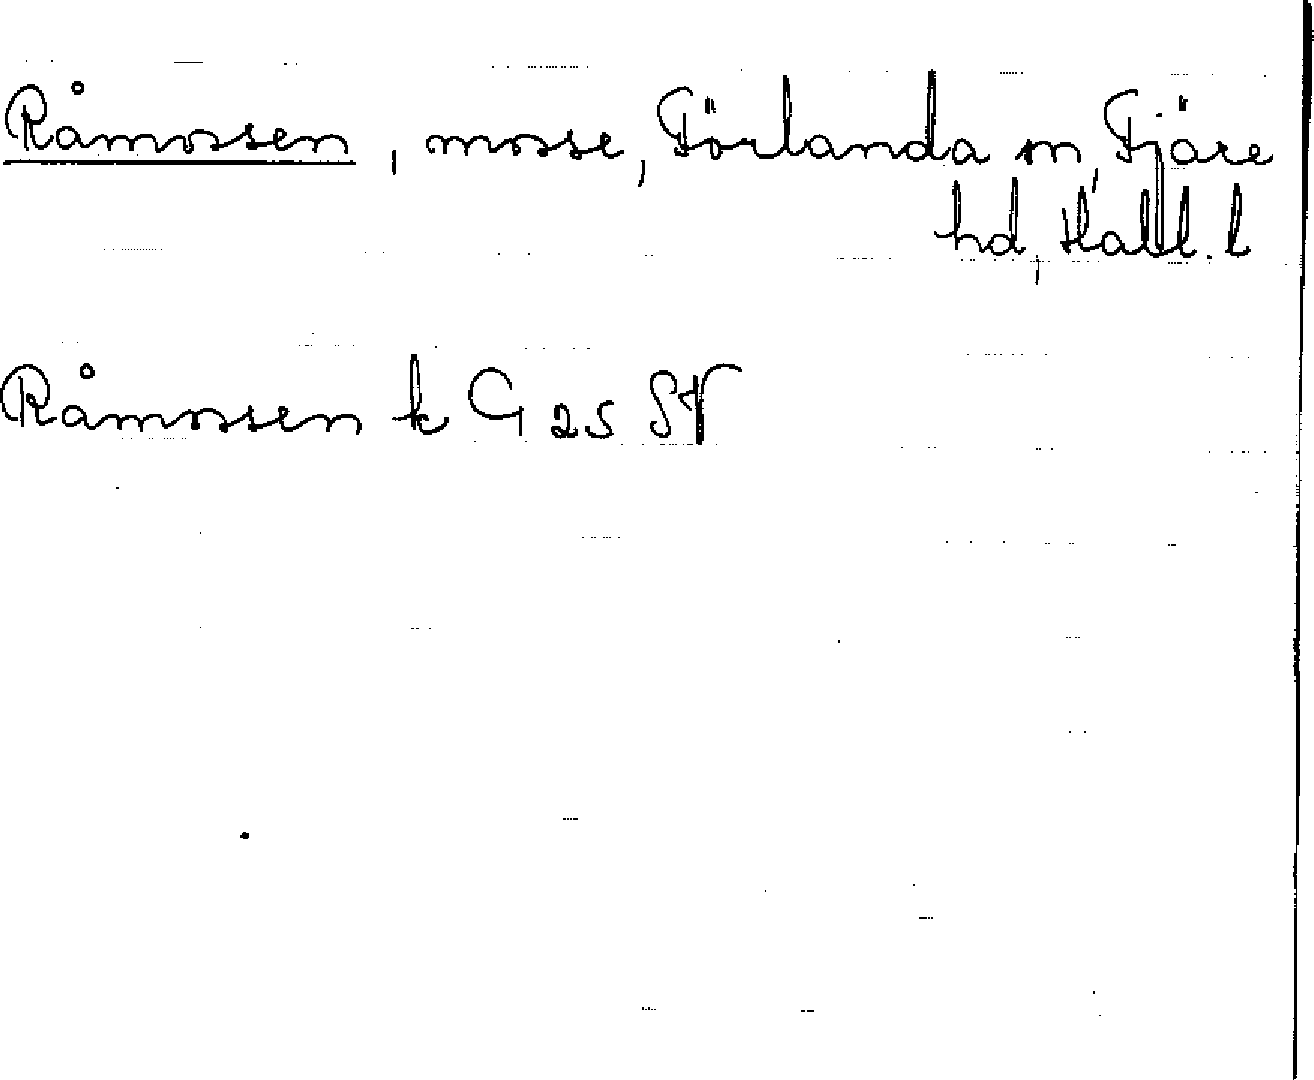 Råmossen, mosse, Förlanda sn, Fjäre
hd, Hall. l
Råmossen k G 25 SV